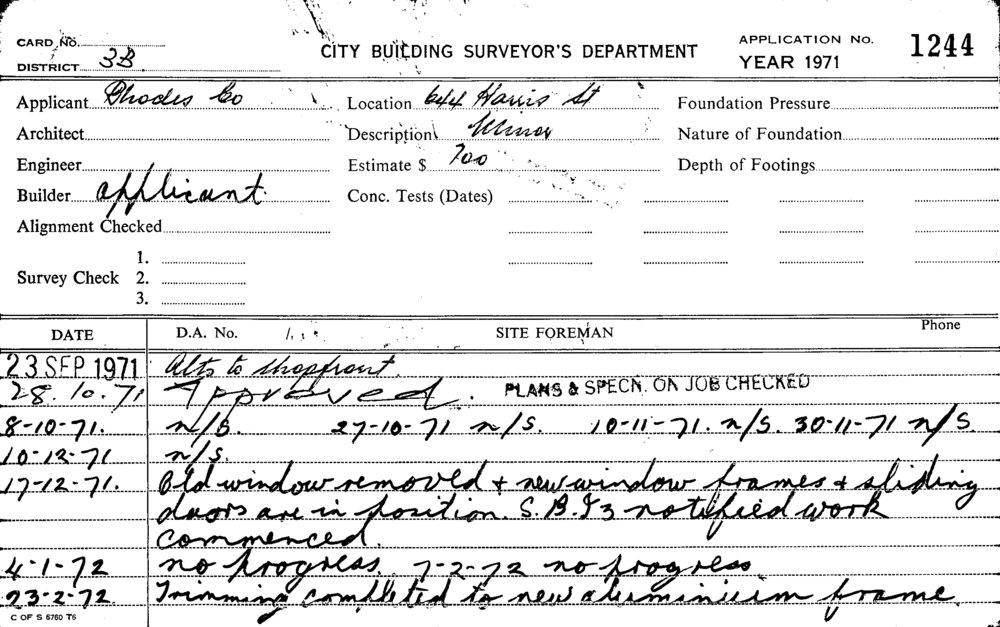 CARD No.
DISTRICT 3B
CITY BUILDING SURVEYOR'S DEPARTMENT
APPLICATION No. 1244
YEAR 1971
Applicant Rhodes Co
Location 644 Harris St
Foundation Pressure
Architect
Description Minor
Nature of Foundation
Engineer
Estimate $ 700
Depth of Footings
Builder applicant
Conc. Tests (Dates)
Alignment Checked
Survey Check 1.
2.
3.
DATE D.A. No. SITE FOREMAN Phone
23 SEP 1971 Alts to shopfront.
28.10.71 Approved. PLANS & SPECN. ON JOB CHECKED
8-10-71. n/S. 27-10-71 n/S. 10-11-71. n/S. 30-11-71 n/S.
10-12-71 n/S.
17-12-71. Old window removed + new window frames + sliding
doors are in position. S.B.I 3 notified work
commenced.
4-1-72 no progress. 7-2-72 no progress.
23-2-72. Trimming completed to new aluminium frame.
C OF S 6760 T6